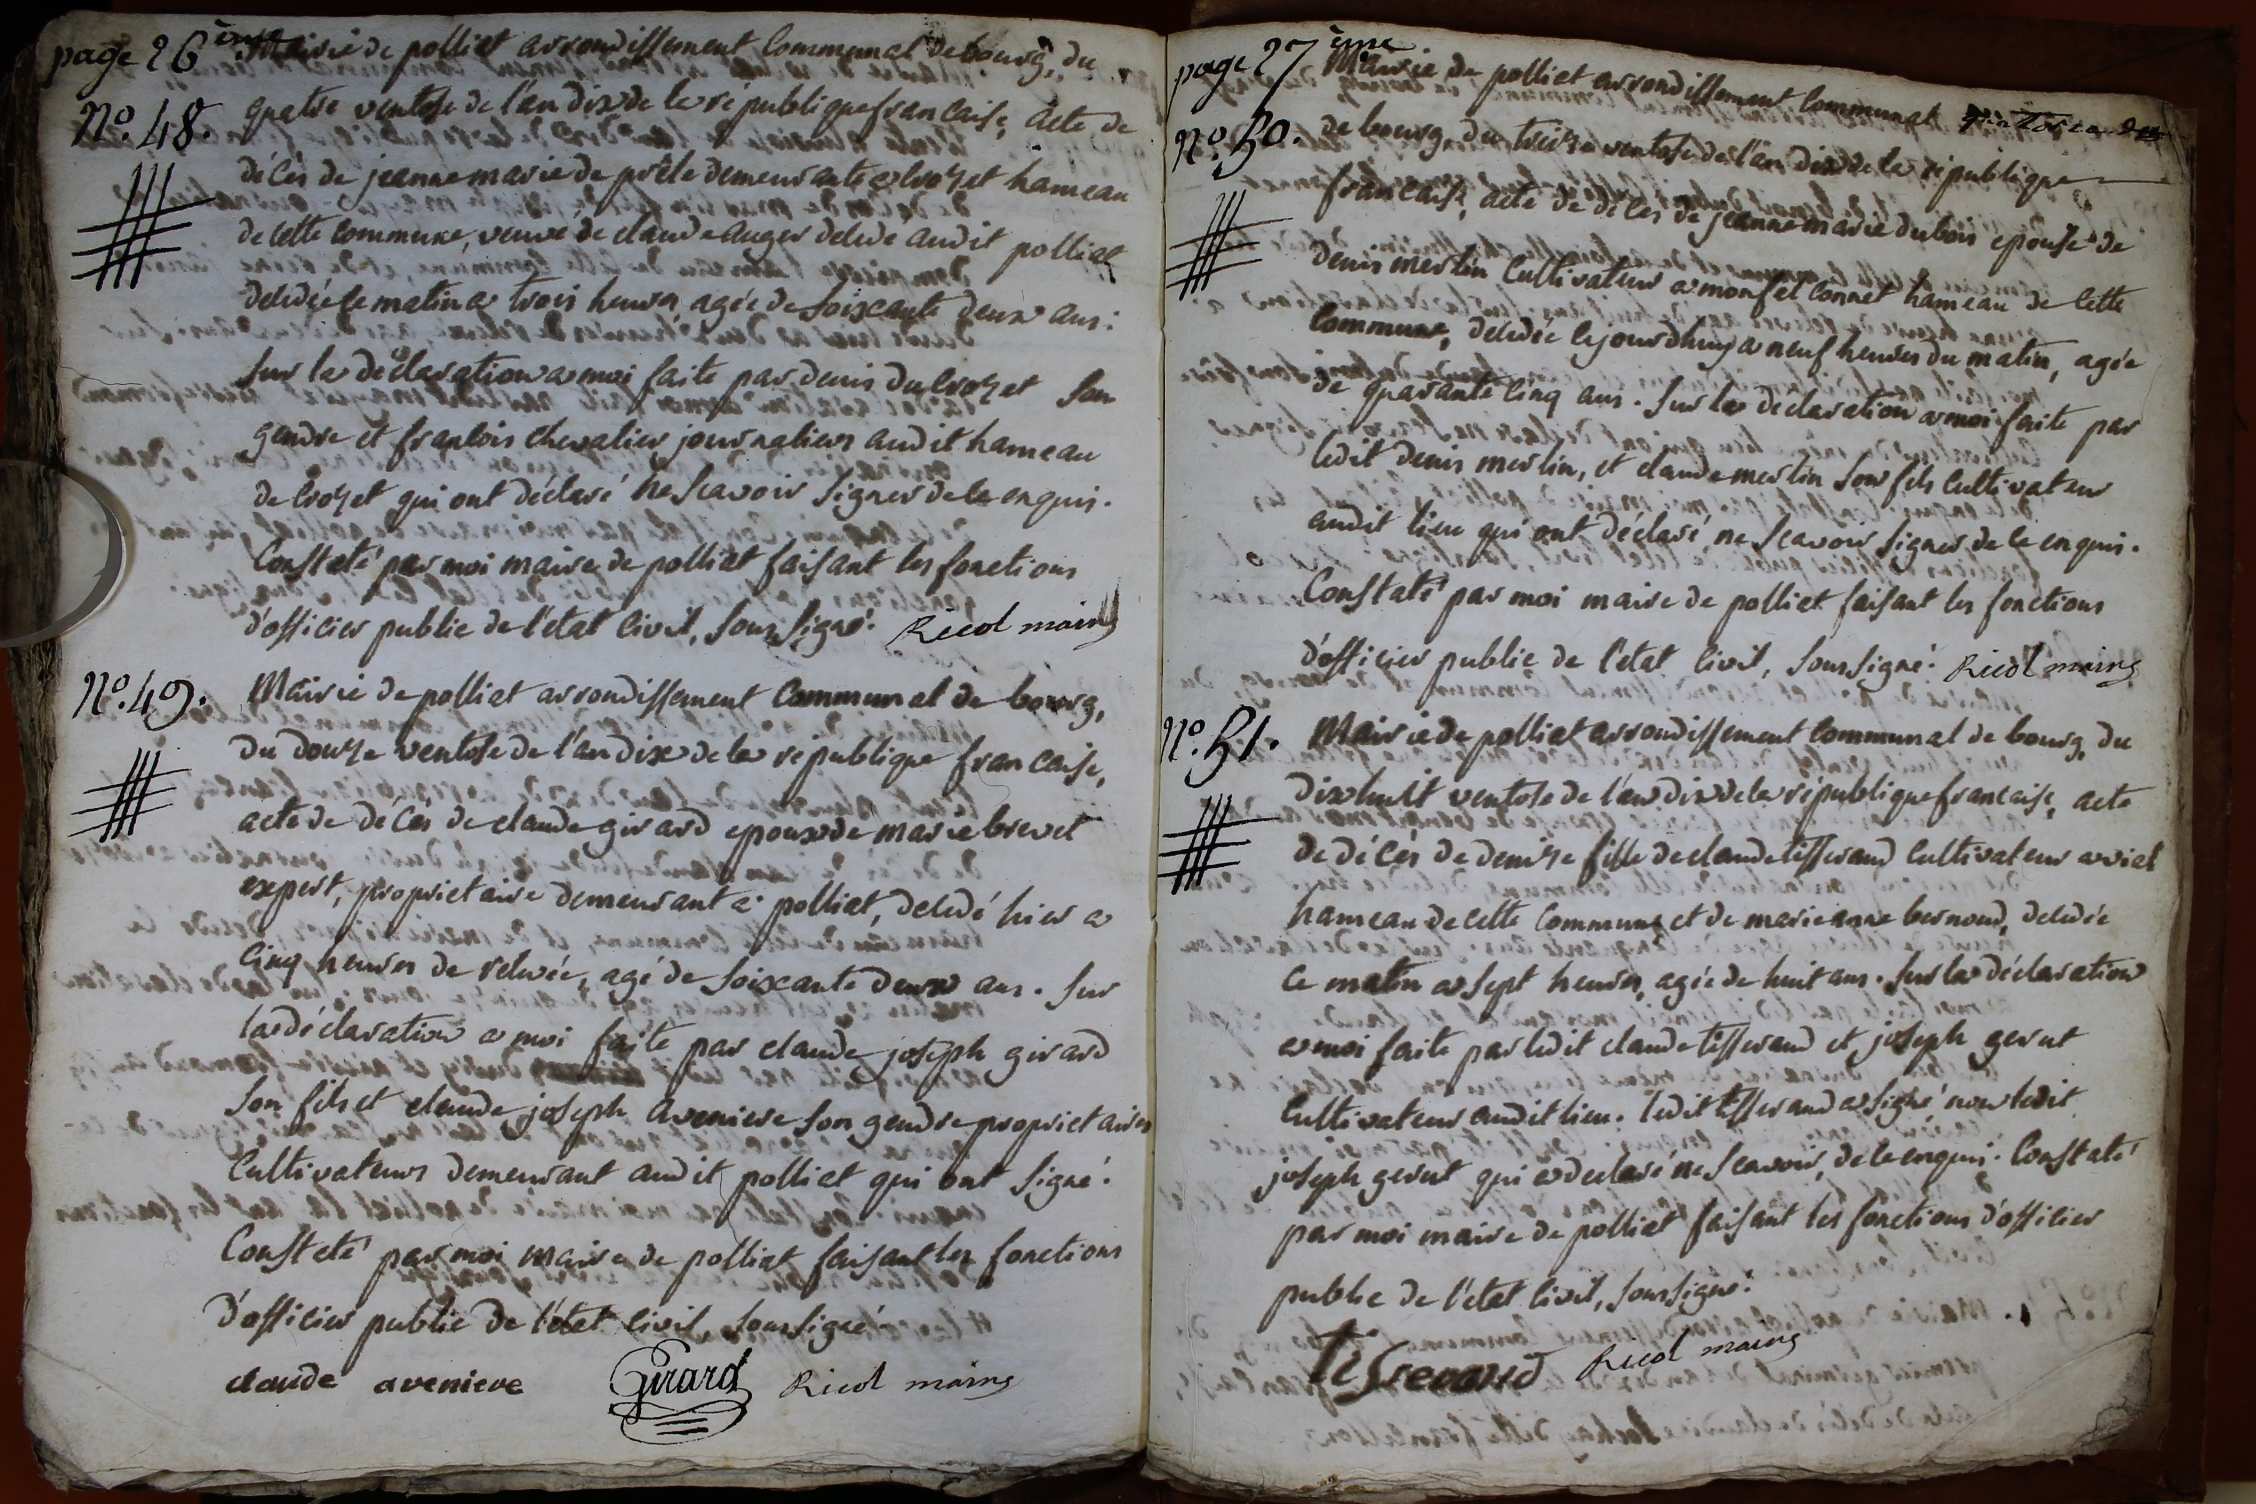 page 26 ème Mairie de polliat arrondissement Communal de bourg, du
N.º 48. quatre ventose de l'an dix de la république francaise, acte de
décès de jeanne marie de prêle demeurante a Crozet hameau
de cette commune, veuve de claude auger décédé audit polliat
décédée ce matin a trois heures, agée de soixante deux ans.
Sur la déclaration a moi faite par denis du Crozet son
gendre et francois chevalier journaliers audit hameau
de Crozet qui ont déclaré ne scavoir signer de ce enquis.
Constaté par moi maire de polliat faisant les fonctions
d'officier public de l'état civil, soussigné. Ricol maire
N.º 49. Mairie de polliat arrondissement Communal de bourg,
du douze ventose de l'an dix de la république francaise,
acte de décès de claude girard epoux de marie brevet
expert, proprietaire demeurant a polliat, décédé hier a
Cinq heures de relevée, agé de soixante deux ans. Sur
la déclaration a moi faite par claude joseph girard
son fils et claude joseph aveniere son gendre proprietaires
Cultivateurs demeurant audit polliat qui ont signé.
Constaté par moi maire de polliat faisant les fonctions
d'officier public de l'état civil, soussigné.
claude aveniere Girard Ricol maire
page 27 ème Mairie de polliat arrondissement Communal
N.º 50. de bourg, du treize ventose de l'an dix de la république
francaise, acte de décès de jeanne marie dubois epouse de
denis merlin Cultivateur a monfalconnet hameau de cette
Commune, décédée cejourdhuy a neuf heures du matin, agée
de quarante cinq ans. Sur la déclaration a moi faite par
ledit denis merlin, et claude merlin son fils cultivateur
audit lieu qui ont déclaré ne scavoir signer de ce enquis.
Constaté par moi maire de polliat faisant les fonctions
d'officier public de l'état civil, soussigné. Ricol maire
N.º 51. Mairie de polliat arrondissement communal de bourg, du
dixhuit ventose de l'an dix de la république francaise, acte
de décès de denize fille de claude tisserand Cultivateur a vial
hameau de cette Commune et de marieanne bernoud, décédée
ce matin a sept heures, agée de huit ans. Sur la déclaration
a moi faite par ledit claude tisserand et joseph gerut
Cultivateur audit lieu. ledit tisserand a signé non ledit
joseph gerut qui a déclaré ne scavoir, de ce enquis. Constaté
par moi maire de polliat faisant les fonctions d'officier
public de l'état civil, soussigné.
Tisserand Ricol maire